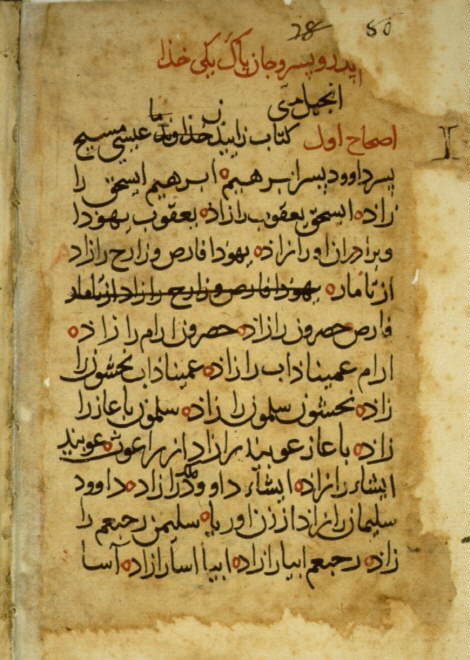 28 50
اپدر و پسر و جان پاک یکی خذا
انجیل متی
اصحاح اول کتاب زاییدن خذاوند ما عیسی مسیح
پسر داوود پسر ابرهیم ابرهیم اسحق را
زاد اسحق یعقوب را زاد یعقوب یهودا
و برادران او را زاد یهودا فارص و زارح را زاد
از تامار یهودا فارص و زارح را زاد از تامار
فارص حصرون را زاد حصرون ارام را زاد
ارام عمیناداب را زاد عمیناداب نحشون را
زاد نحشون سلمون را زاد سلمون باعاز را
زاد باعاز عوبید را زاد از راعوث عوبید
ایشاء را زاد ایشاء داوود ملک را زاد داوود
سلیمان را زاد از زن اوریا سلیمن رحبعم را
زاد رحبعم ابیا را زاد ابیا آسا را زاد آسا